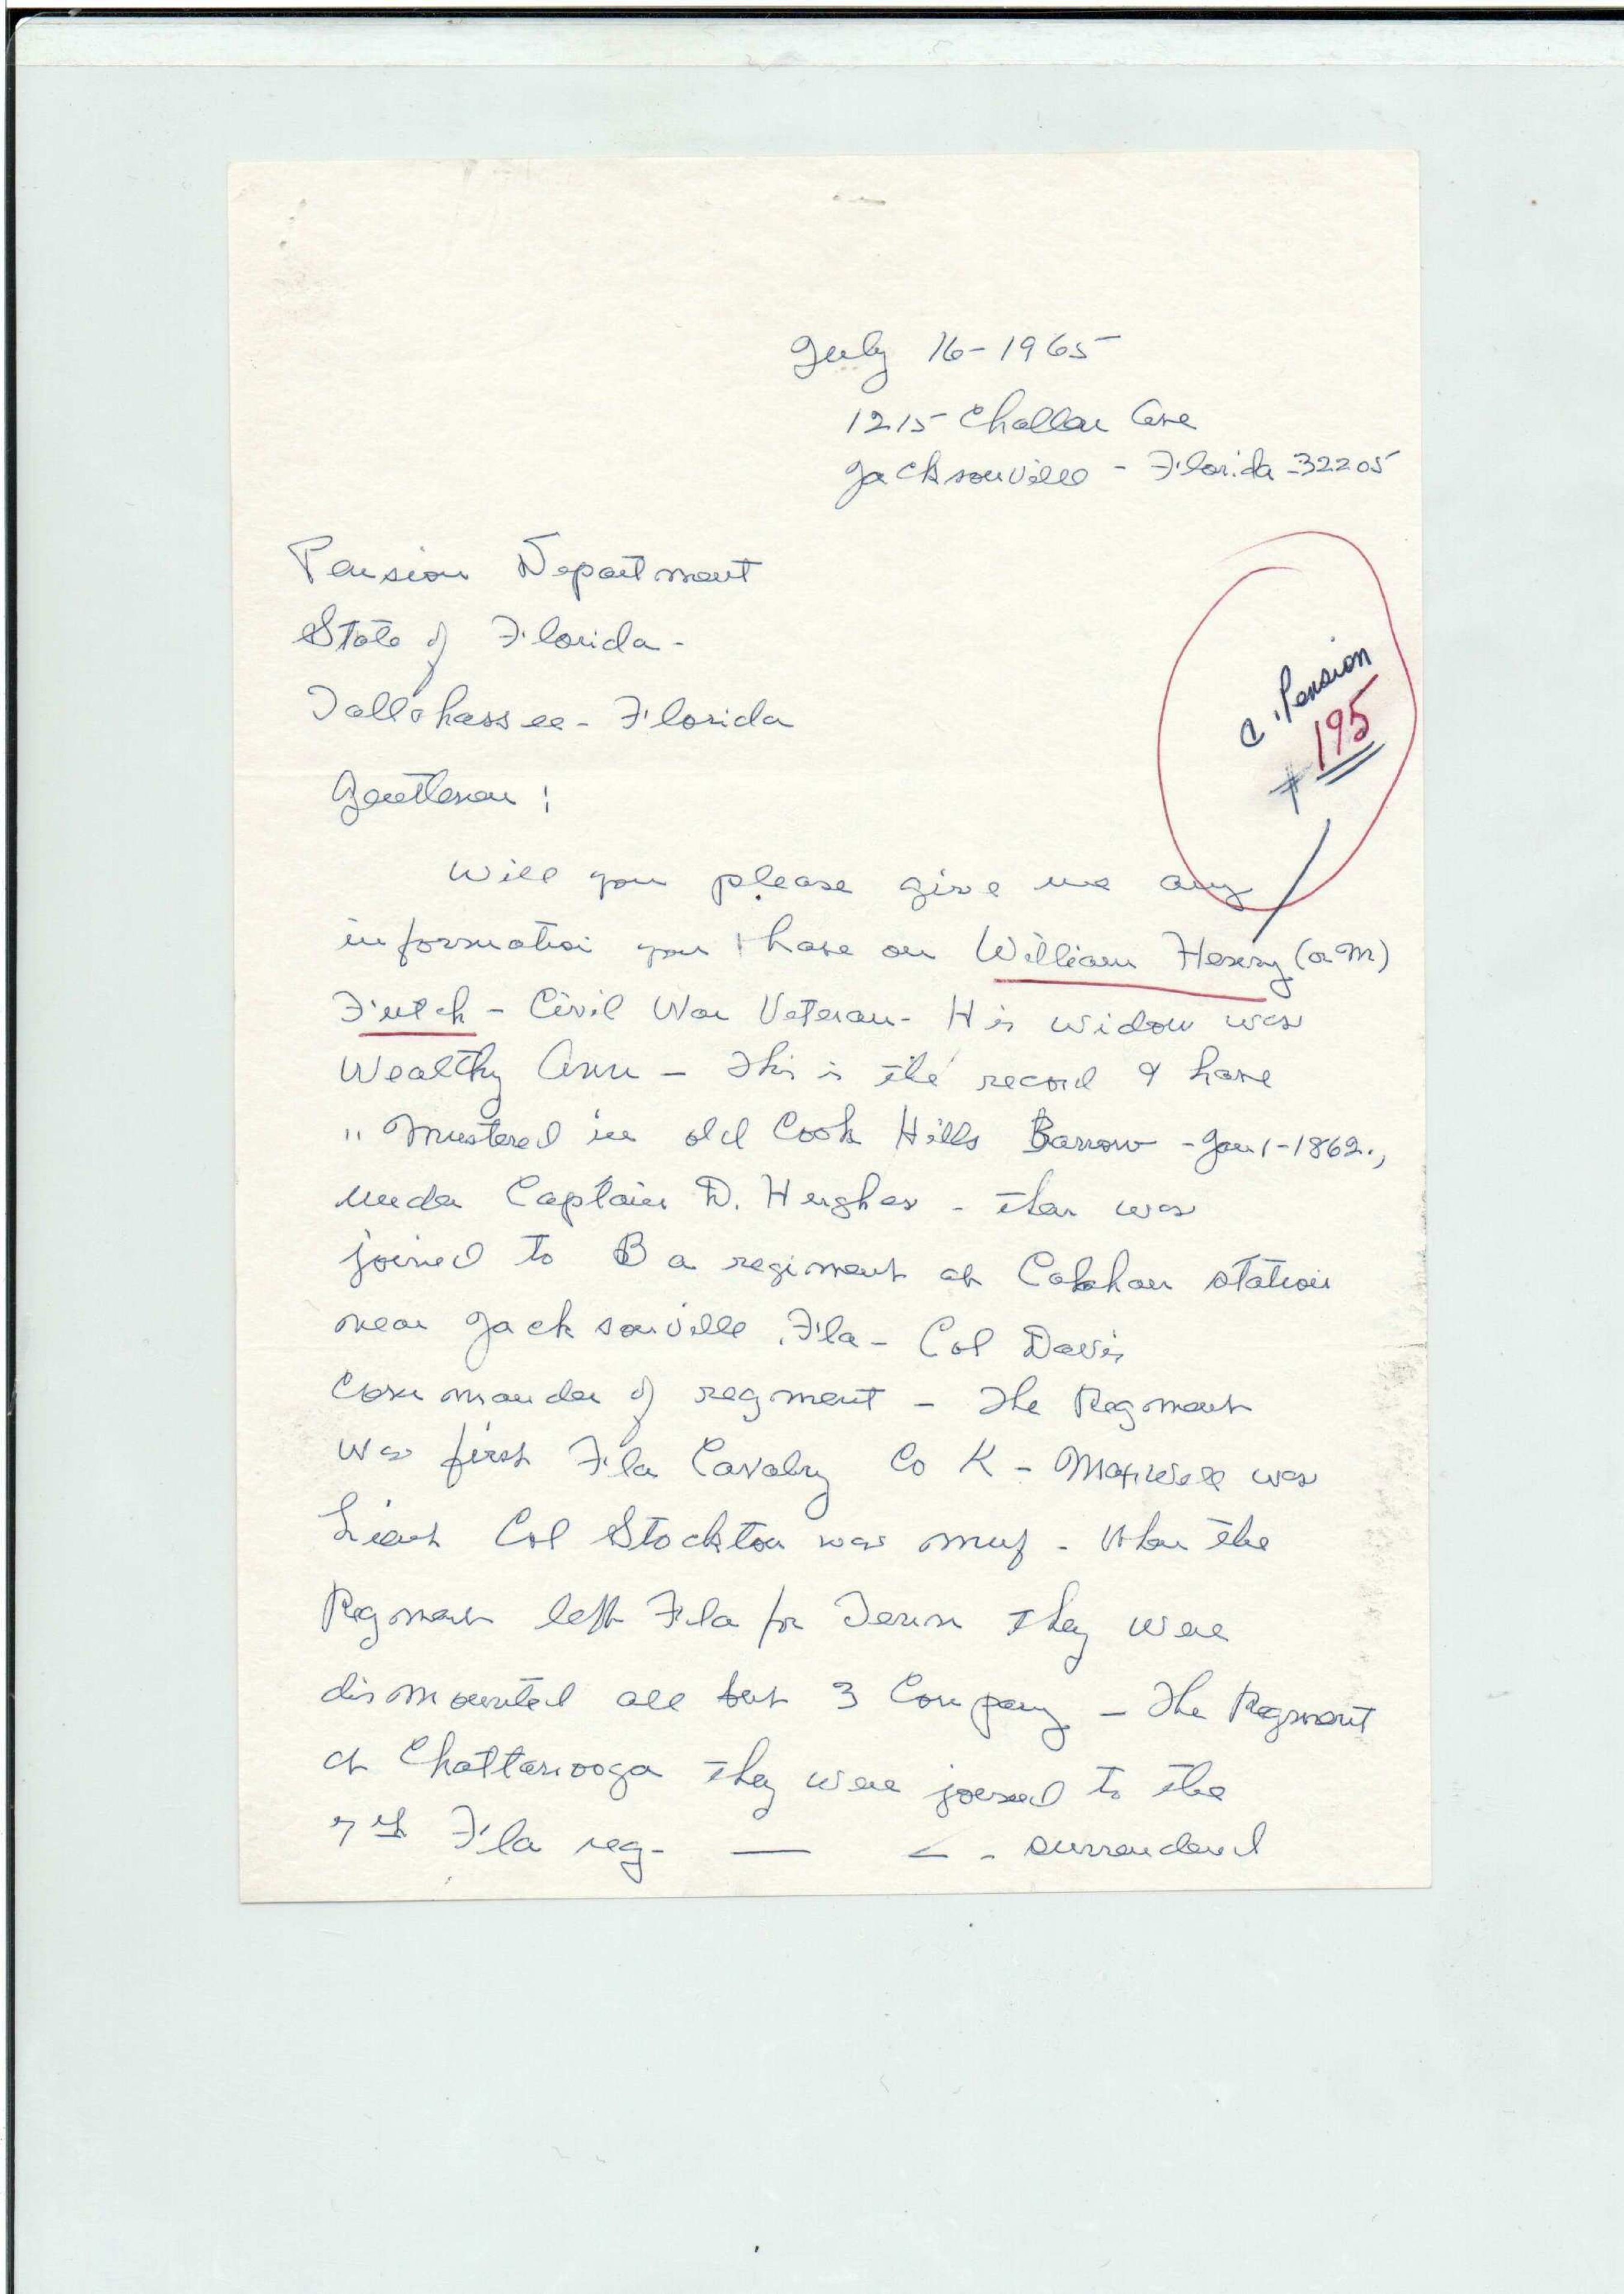 July 16-1965
1215 Challen Ave
Jacksonville - Florida -32205
Pension Department
State of Florida -
Tallahassee - Florida
C. Pension
# 195
Gentlemen :
Will you please give me any
information you have on William Henry (or M)
Futch - Civil War Veteran - His widow was
Wealthy Ann - This is the record I have
" Mustered in old Cook Hills Barrow - Jan 1-1862.,
under Captain D. Hughes - then was
joined to a regiment at Calahan station
near Jacksonville Fla - Col Davis
Commander of regment - The Regment
was first Fla Cavalry Co K - Maxwell was
Lieut Col Stockton was - When the
Regment left Fla for Tenn they were
dismounted all but 3 Company - The Regment
at Chattanooga they were joined to the
7th Fla reg - — - surrendered